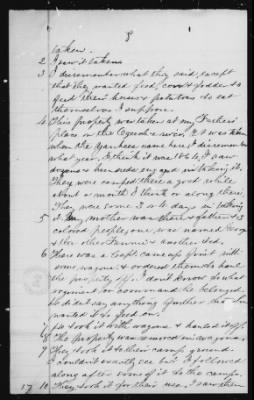 8
taken.
2 I saw it taken
3 I disremember what they said, except
that they wanted food, corn & fodder to
feed their horses & potatoes to eat
themselves I suppose.
4 This property was taken at my Father's
place on the Ogeechee river, it was taken
when the Yankees came here I disremember
what year, I think it was 1864, I saw
dozens & hundreds engaged in taking it.
They were camped there a good while
about a month I think or along there.
They were some 3 or 4 days in taking
5 it. My mother was there & father & 3
colored people, one was named George
& the other Fannie & another Ted.
6 There was a Capt. came up first with
some wagons & ordered them to load
the property up. I don't know to what
regiment or command he belonged
he didn't say anything further than he
wanted it to feed on.
7 He took it with wagons & hauled it off.
8 The property was removed in wagons.
9 They took it to their camp ground.
I couldn't exactly see but I followed
along after some of it to the camps.
17 10 They took it for their use, I saw them